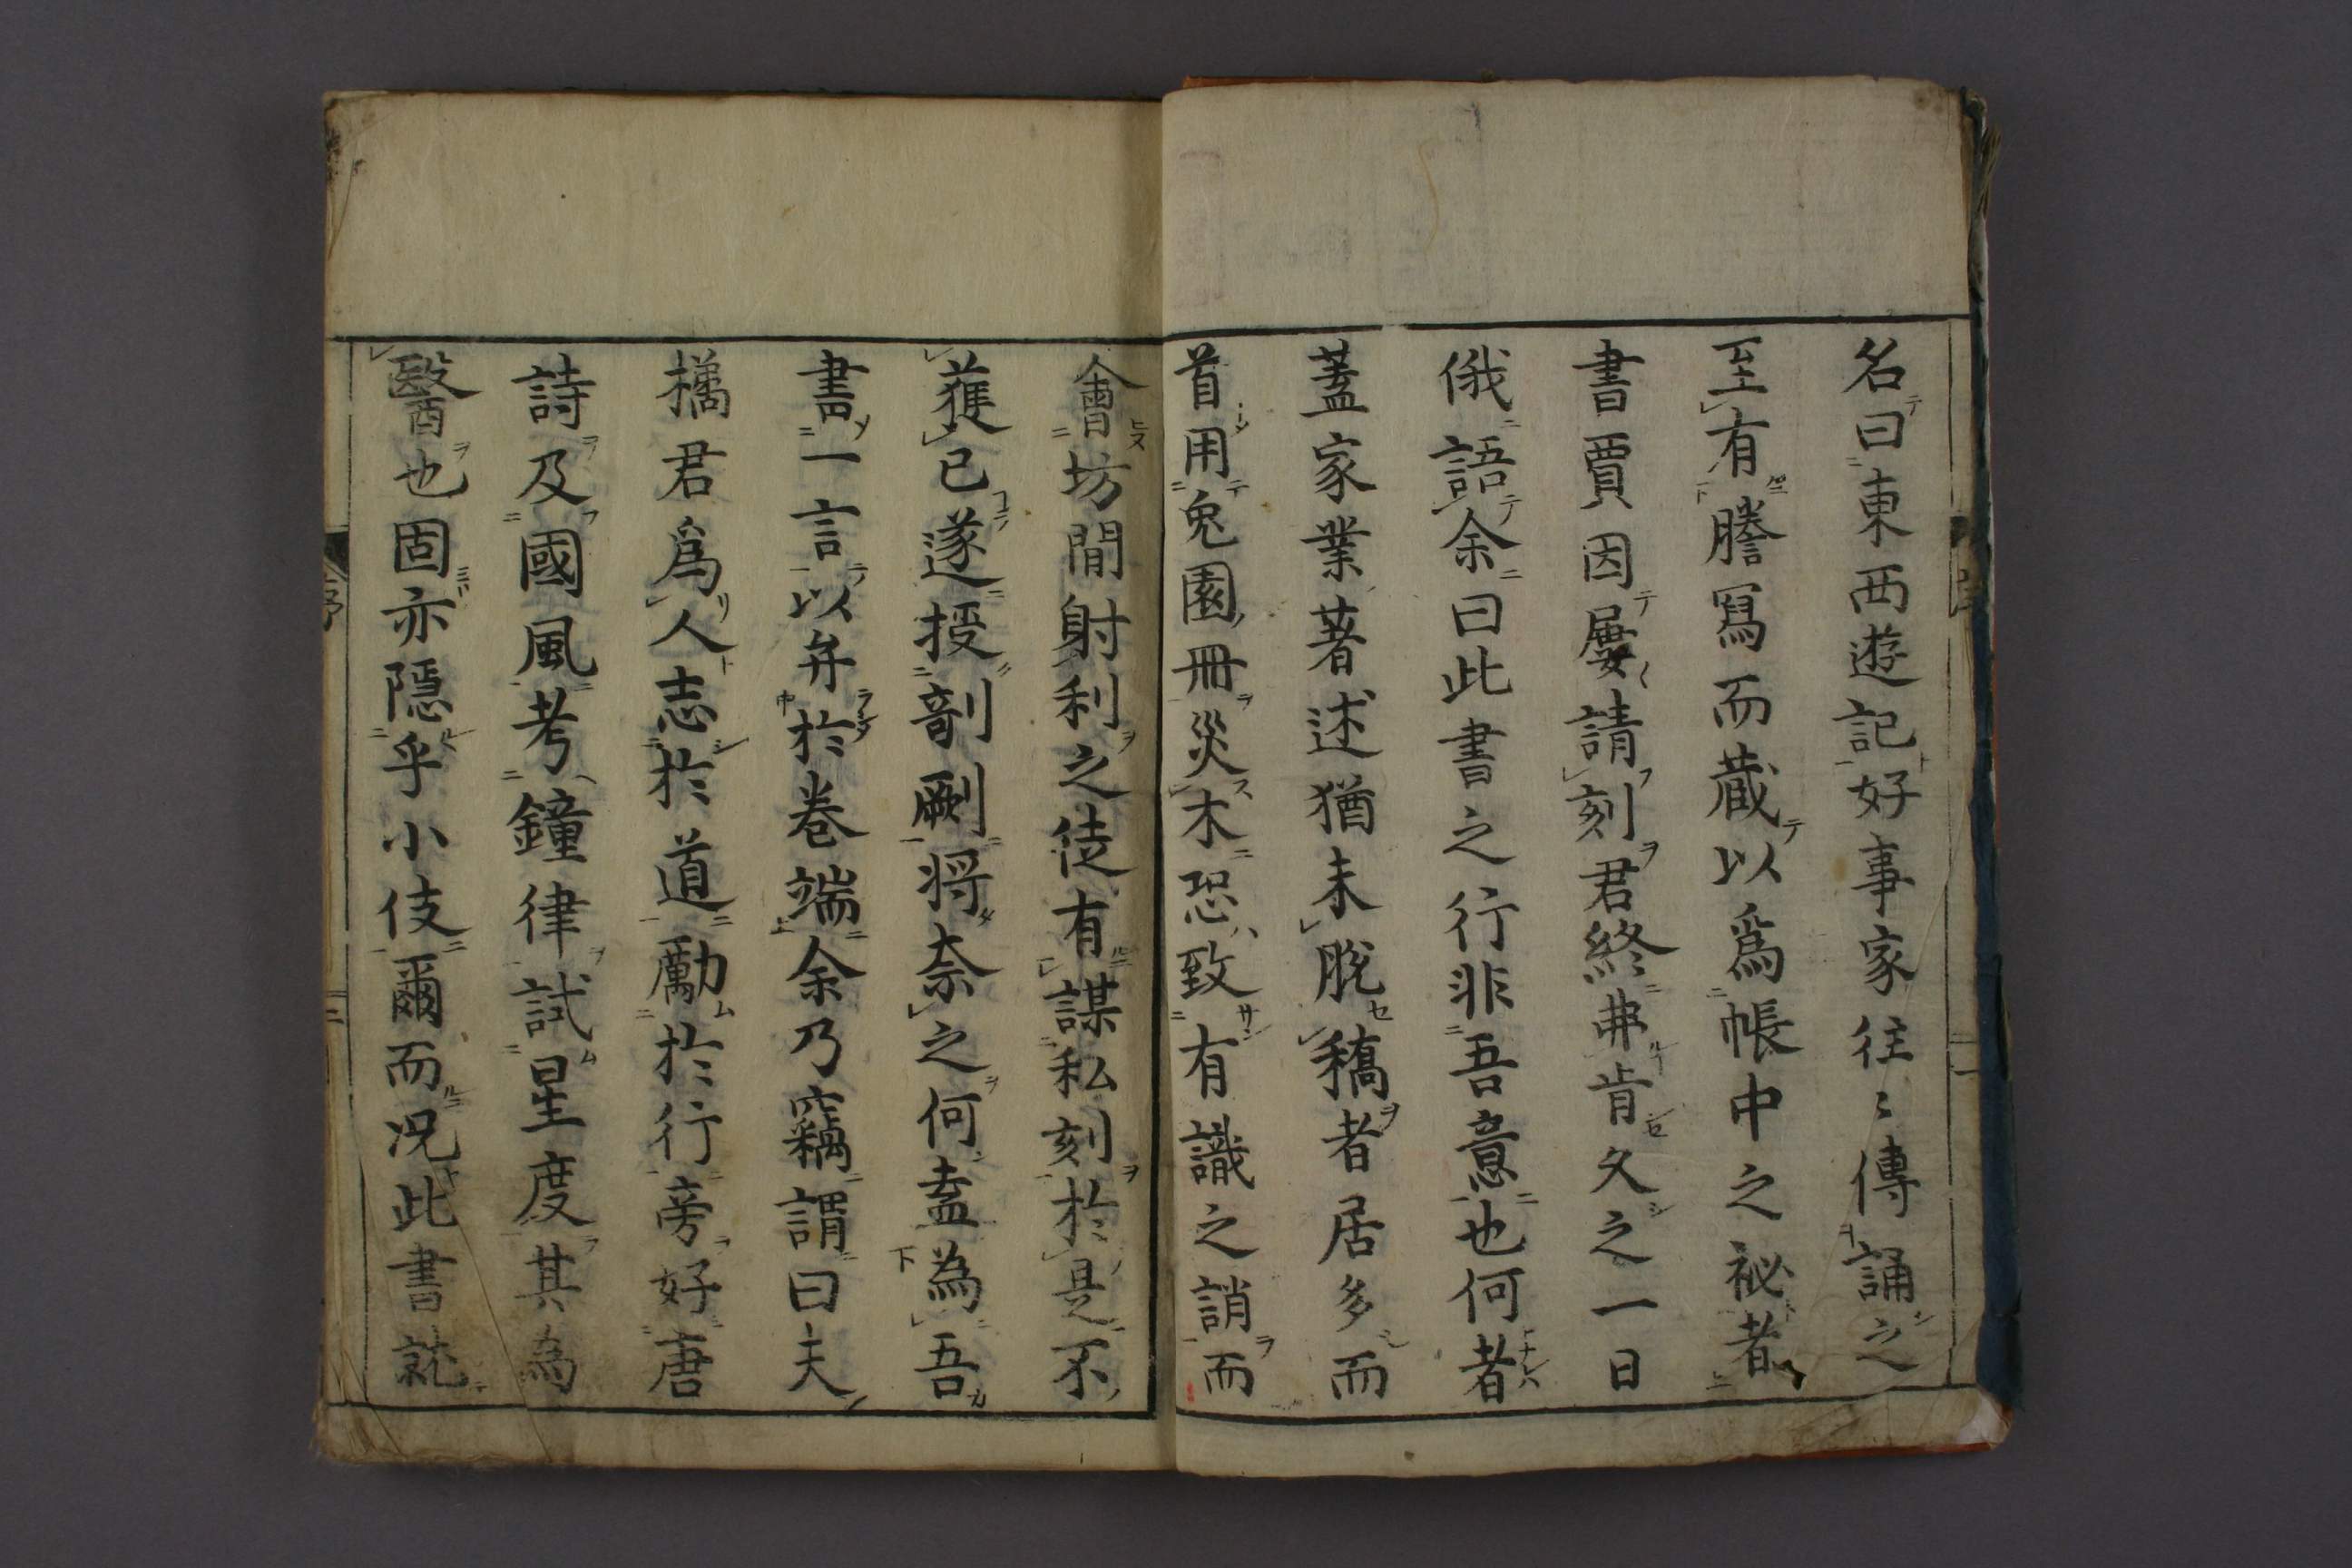 名曰東西遊記好事家往〻傳誦之
至有謄寫而蔵以爲帳中之祕者
書賈因屢請刻君終弗肯久之一日
俄語余曰此書之行非吾意也何者
蓋家業著述猶未脱稿者居多而
首用兔園冊災木恐致有識之誚而
會坊間射利之徒有謀私刻於是不
獲已遂授剞劂将奈之何盍為吾
書一言以弁於巻端余乃竊謂曰夫
橘君爲人志於道勵於行旁好唐
詩及國風考鐘律試星度其為
醫也固亦隠乎小伎爾而况此書就
序
二